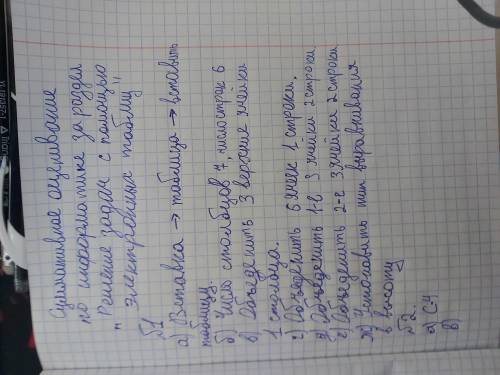 Суммативное оценивание
по информатике за раздел
"Решение задач с помощью
электронных таблиц"
№1
а) Вставка → таблица → вставить
таблицу.
б) Число столбцов 7, число строк 6
в) Объеденить 3 верхние ячейки
1 столбца.
г) Объеденить 6 ячеек 1 строки.
д) Объеденить 1-е 3 ячейки 2 строки
е) Объеденить 2-е 3 ячейки 2 строки
ж) Установить тип выравнивания
в высоту
№2.
а) С4
в)